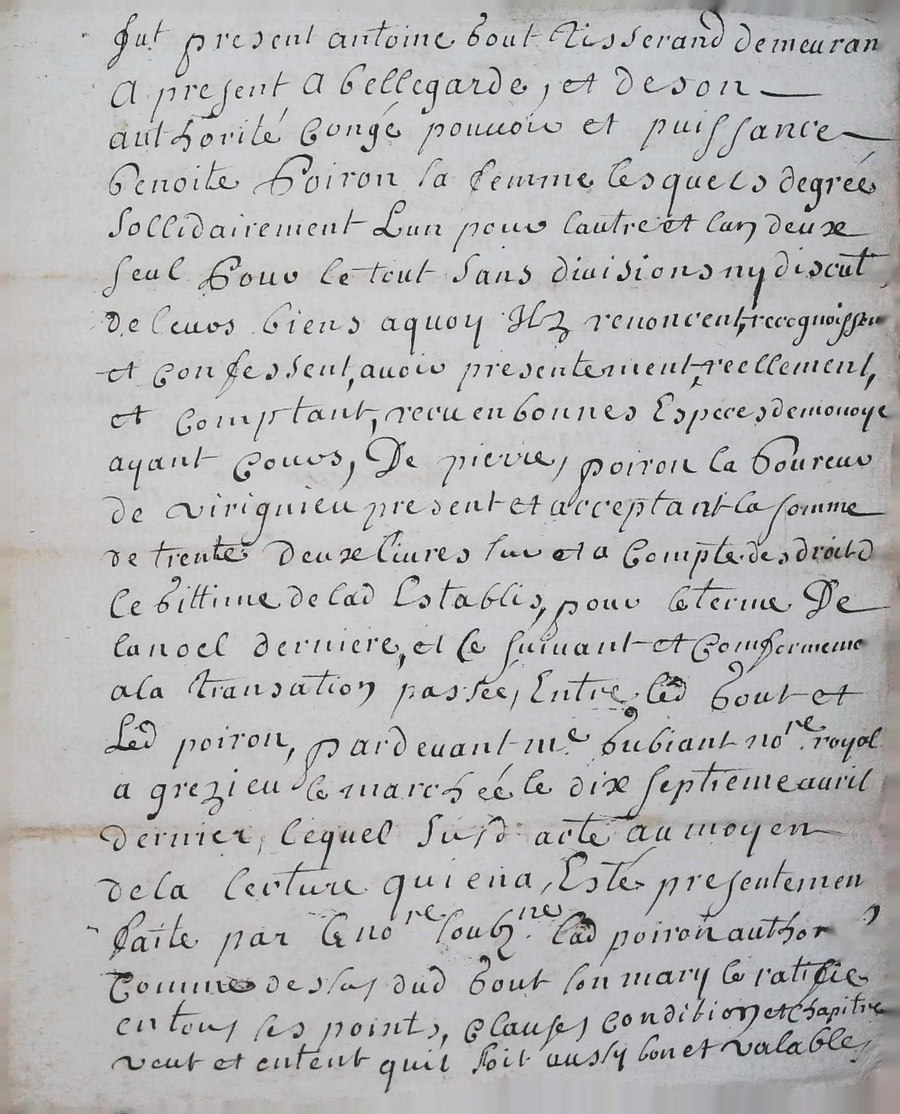 fut present antoine bout tisserand demeuran
A present A bellegarde, et de son
authorité Congé pouvoir et puissance
benoite Poiron sa femme lesquels degrée
sollidairement Lun pour lautre et lun deux
seul Pour le tout sans divisions ny discut
de leurs biens aquoy Ilz renoncent, recognoissen
et Confessent, avoir presentement, reellement,
et Comptant, recu en bonnes Especes de monoye
ayant Cours, De pierre, poiron laboureur
de viriguieu present et acceptant la somme
de trente deux livres sur et a Compte des droit d
le bittime de lad Establis, pour le terme De
lanoel derniere, et Ce suivant et Comformeme
ala transation passée, Entre led bout et
Led poiron, pardevant me bubiant nore royal
a grezieu le marchéé le dix septieme avril
dernier, lequel susd acte au moyen
de la lecture qui en a, Esté presentemen
faite par le nore soubz.ne lad poiron author
Comme dessus dud bout son mary le ratifie
en tous les points, Clauses Condition et Chapitre
veut et entent quil soit aussy bon et valable,